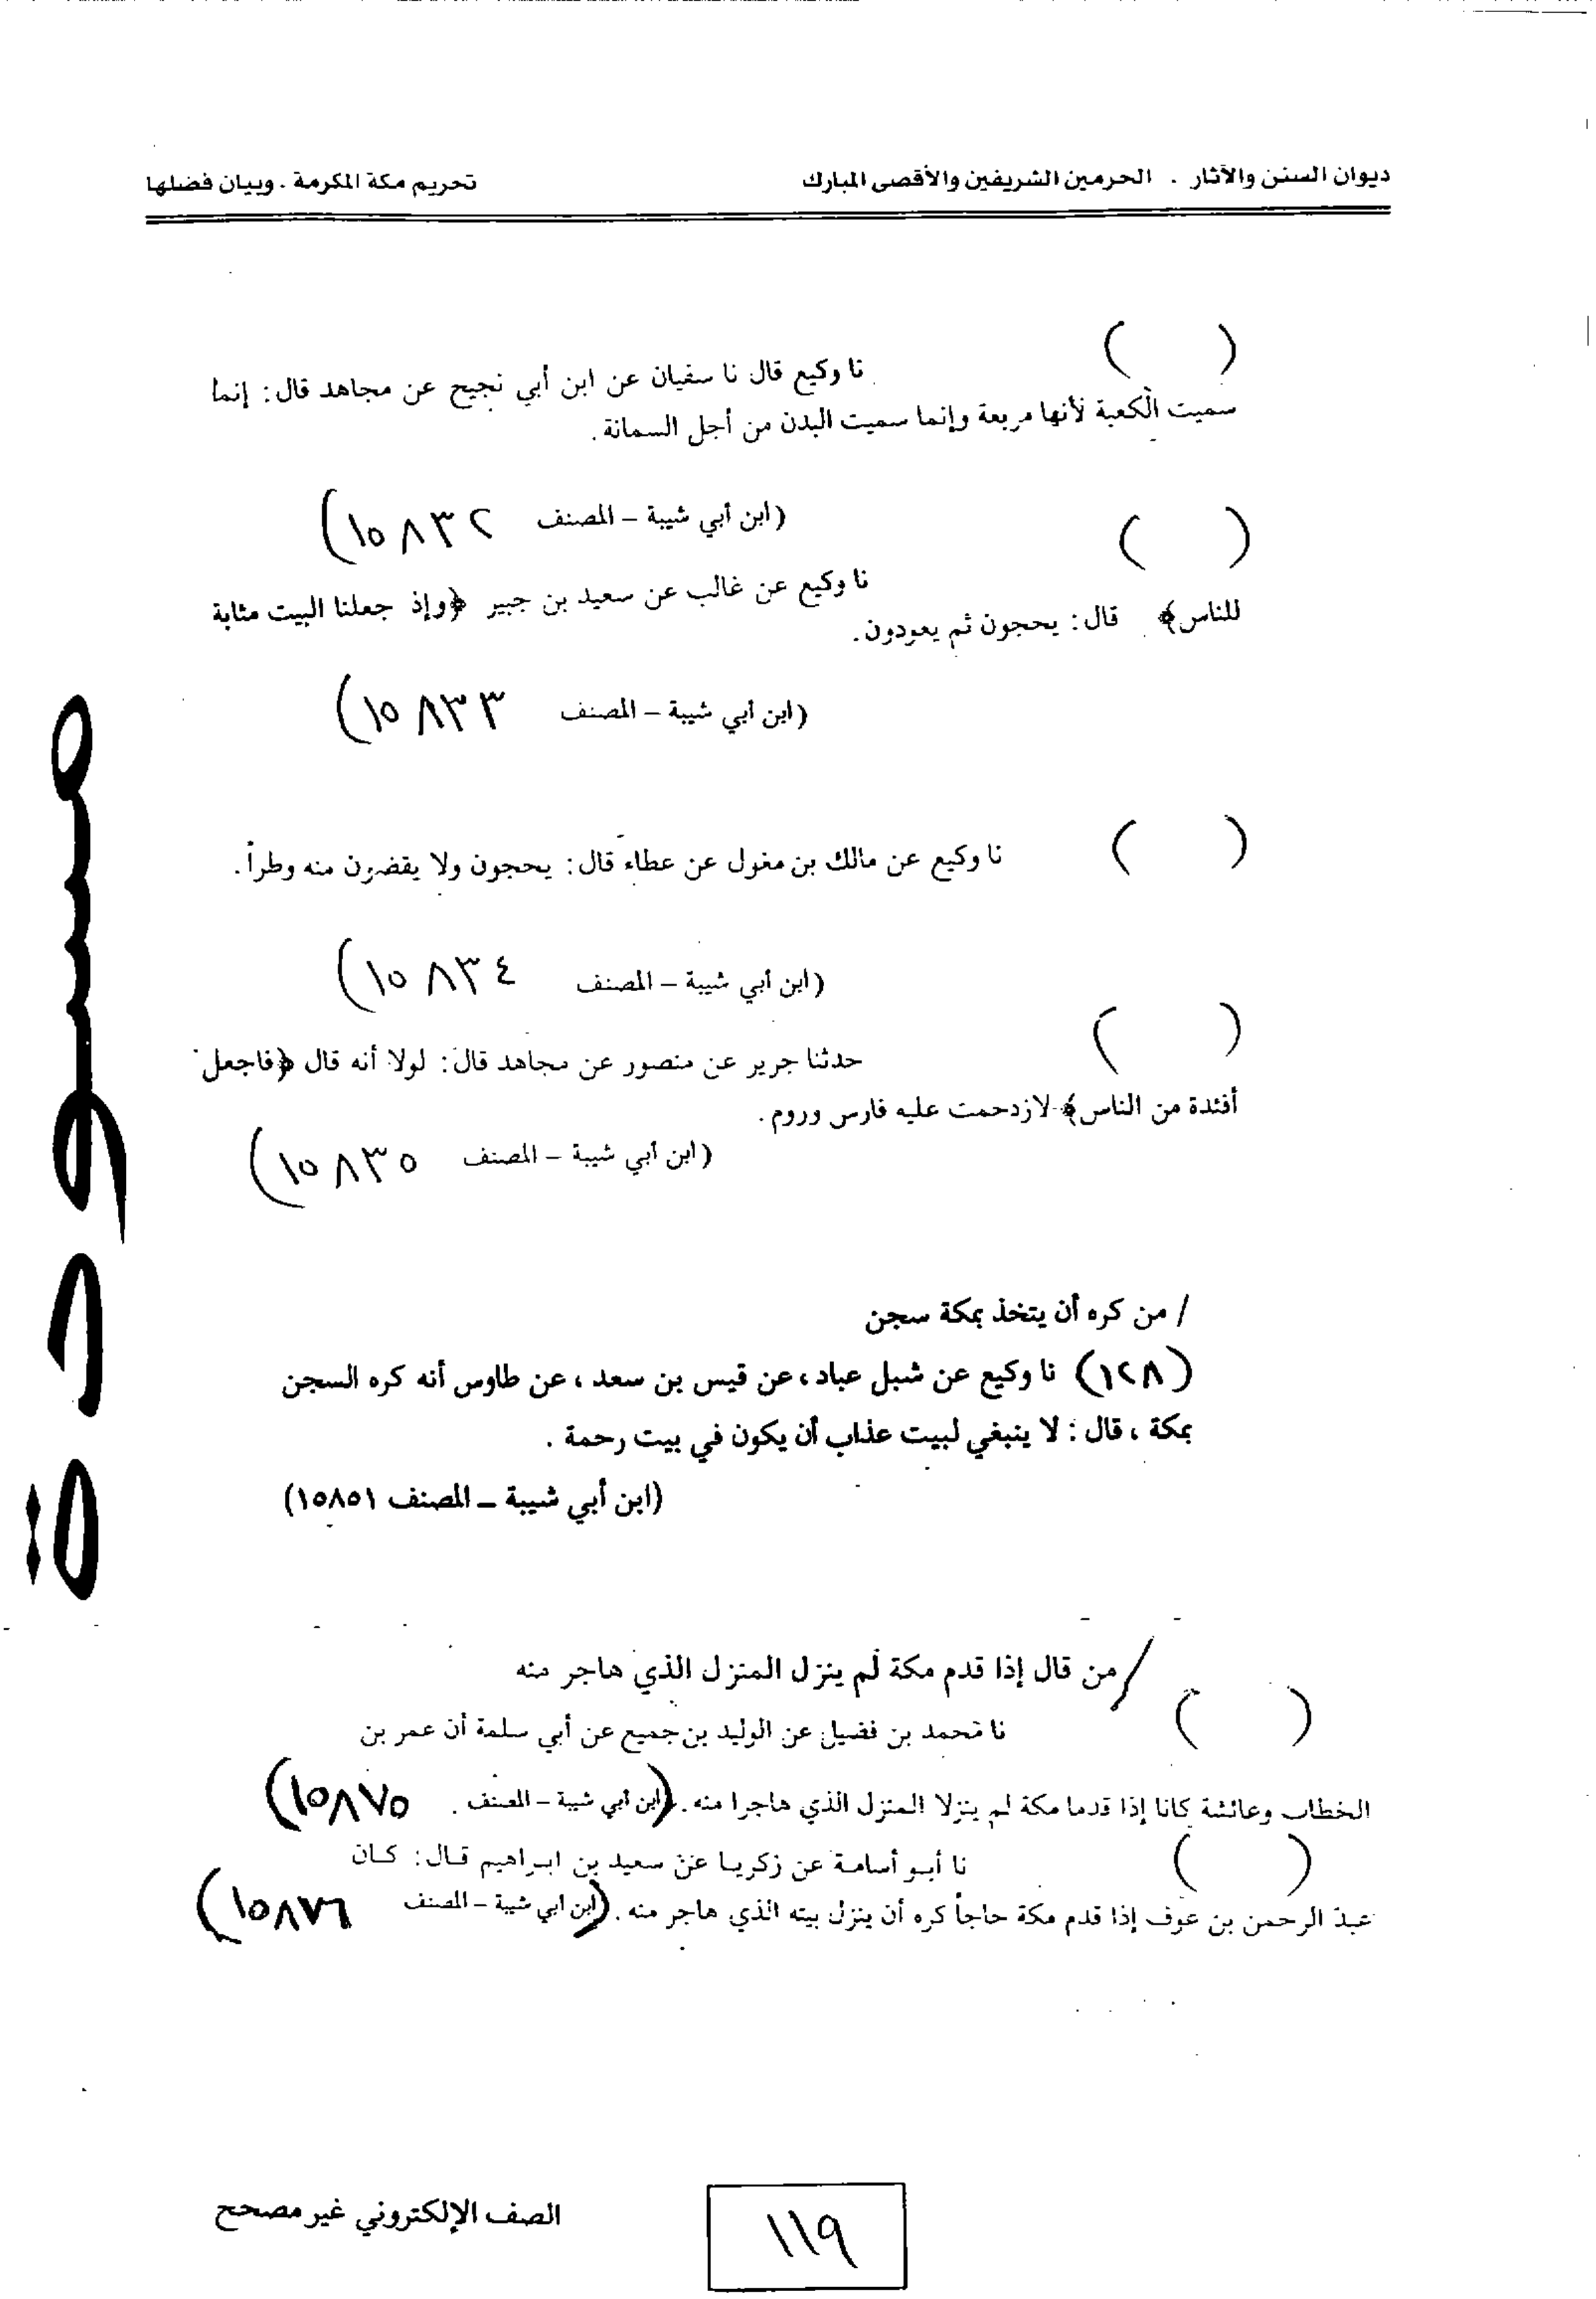 ديوان السنن والآثار . الحرمين الشريفين والأقصى المبارك تحريم مكة المكرمة . وبيان فضلها
( ) نا وكيع قال نا سفيان عن ابن أبي نجيح عن مجاهد قال: إنما
سميت الكعبة لأنها مربعة وإنما سميت البدن من أجل السمانة.
(ابن أبي شيبة – المصنف ١٥٨٣٢)
( ) نا وكيع عن غالب عن سعيد بن جبير ﴿وإذ جعلنا البيت مثابة
للناس﴾ قال: يحجون ثم يعودون.
(ابن أبي شيبة – المصنف ١٥٨٣٣)
( ) نا وكيع عن مالك بن مغول عن عطاء قال: يحجون ولا يقضون منه وطراً.
(ابن أبي شيبة – المصنف ١٥٨٣٤)
( ) حدثنا جرير عن منصور عن مجاهد قال: لولا أنه قال ﴿فاجعل
أفئدة من الناس﴾ لازدحمت عليه فارس وروم.
(ابن أبي شيبة – المصنف ١٥٨٣٥)
/ من كره أن يتخذ بمكة سجن
(١٢٨) نا وكيع عن شبل عباد، عن قيس بن سعد، عن طاوس أنه كره السجن
بمكة، قال: لا ينبغي لبيت عذاب أن يكون في بيت رحمة.
(ابن أبي شيبة – المصنف ١٥٨٥١)
/ من قال إذا قدم مكة لم ينزل المنزل الذي هاجر منه
( ) نا محمد بن فضيل عن الوليد بن جميع عن أبي سلمة أن عمر بن
الخطاب وعائشة كانا إذا قدما مكة لم ينزلا المنزل الذي هاجرا منه. (ابن أبي شيبة – المصنف ١٥٨٧٥)
( ) نا أبو أسامة عن زكريا عن سعيد بن ابراهيم قال: كان
عبد الرحمن بن عوف إذا قدم مكة حاجاً كره أن ينزل بيته الذي هاجر منه. (ابن ابي شيبة – المصنف ١٥٨٧٦)
مسودة
١١٩
الصف الإلكتروني غير مصحح